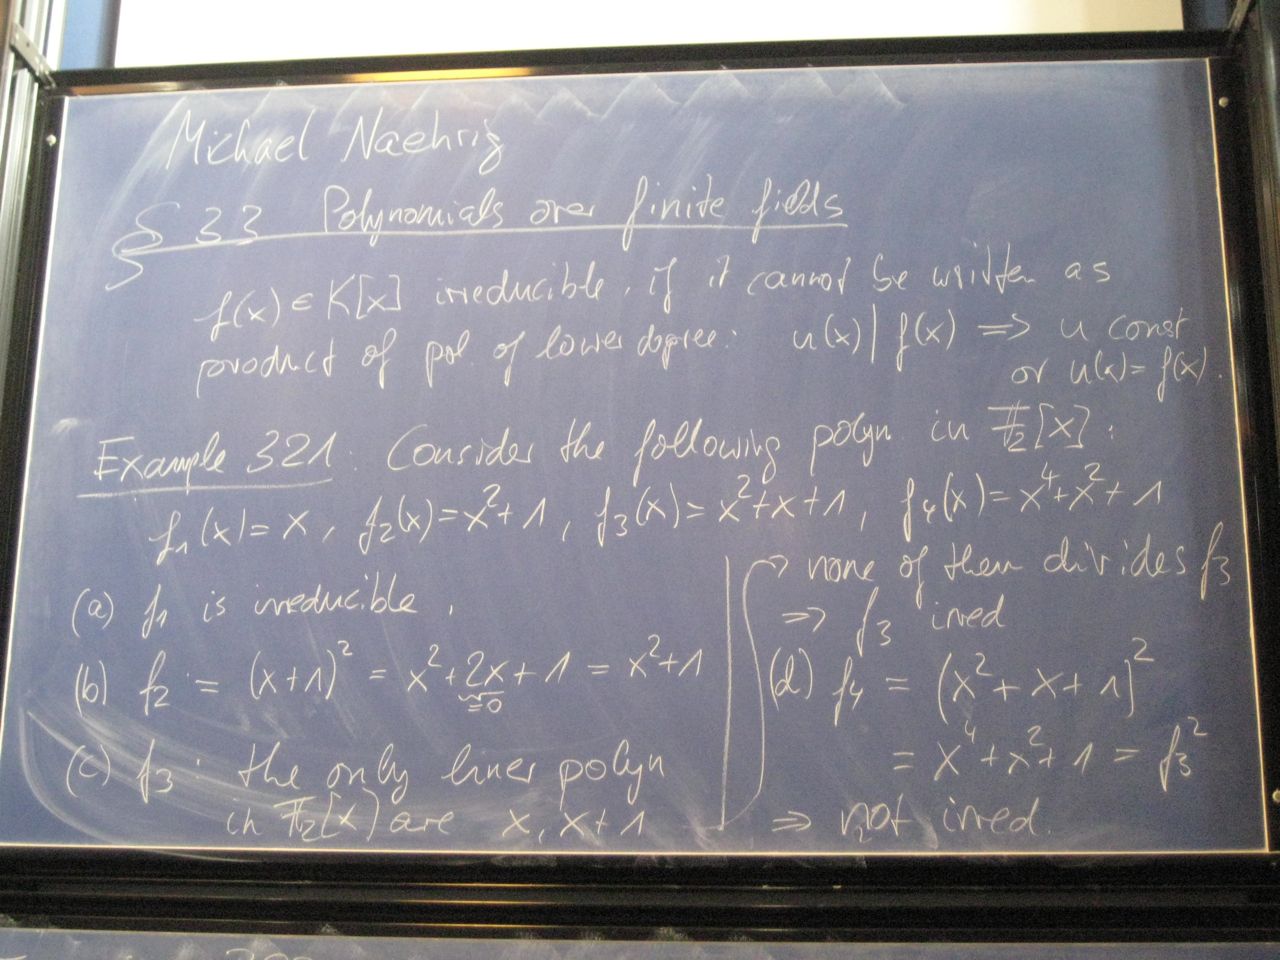 Michael Naehrig
§ 33 Polynomials over finite fields
f(x) ∈ K[x] irreducible, if it cannot be written as
product of pol. of lower degree: u(x) | f(x) => u const
or u(x) = f(x).
Example 321: Consider the following polyn. in 𝔽₂[x]:
f₁(x) = x, f₂(x) = x² + 1, f₃(x) = x² + x + 1, f₄(x) = x⁴ + x² + 1
(a) f₁ is irreducible.
(b) f₂ = (x+1)² = x² + 2x + 1 = x² + 1
=0
(c) f₃: the only liner polyn
in 𝔽₂[x] are x, x+1
→ none of them divides f₃
=> f₃ irred
(d) f₄ = (x² + x + 1)²
= x⁴ + x² + 1 = f₃²
=> not irred.